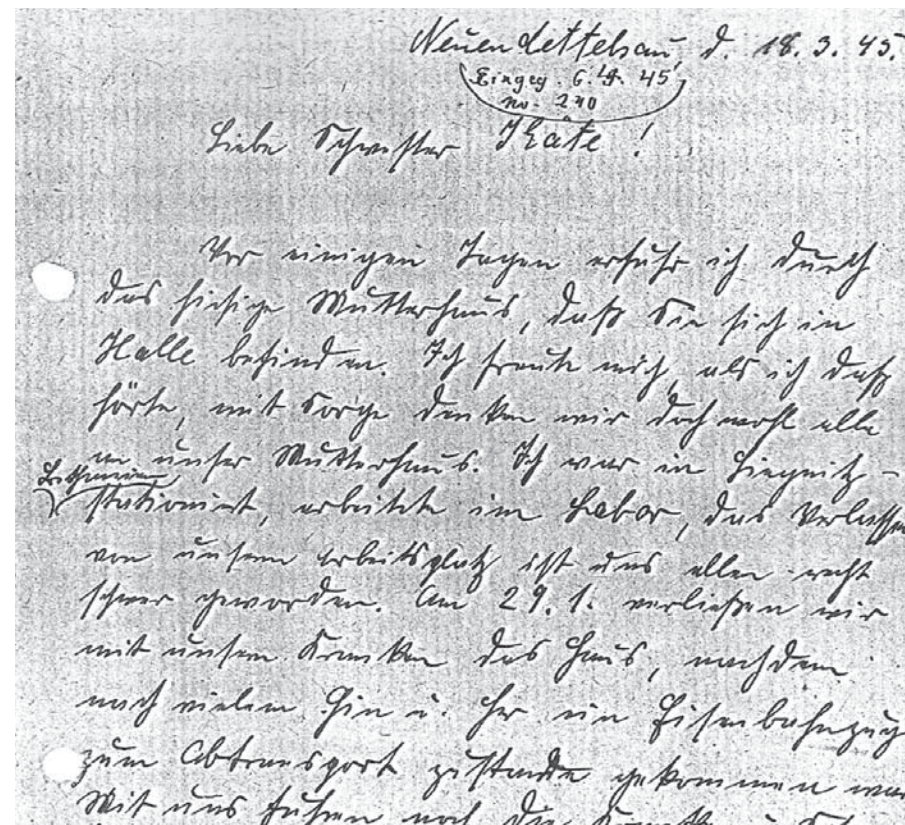 Neuendettelsau, d. 18.3.45.
Eingeg. 6.4. 45
no. 240
Liebe Schwester Käte!
Vor einigen Tagen erfuhr ich durch
das hiesige Mutterhaus, daß Sie sich in
Halle befinden. Ich freute mich, als ich daß
hörte, mit Sorge denken wir doch wohl alle
an unser Mutterhaus. Ich war in Liegnitz-
Bethanien
stationiert, arbeitete im Labor, das Verlassen
von unserm Arbeitsplatz ist uns allen recht
schwer geworden. Am 29.1. verließen wir
mit unsern Kranken das Haus, nachdem
nach vielem Hin u. Her ein Eisenbahnzug
zum Abtransport zustande gekommen war
Mit uns fuhren noch die